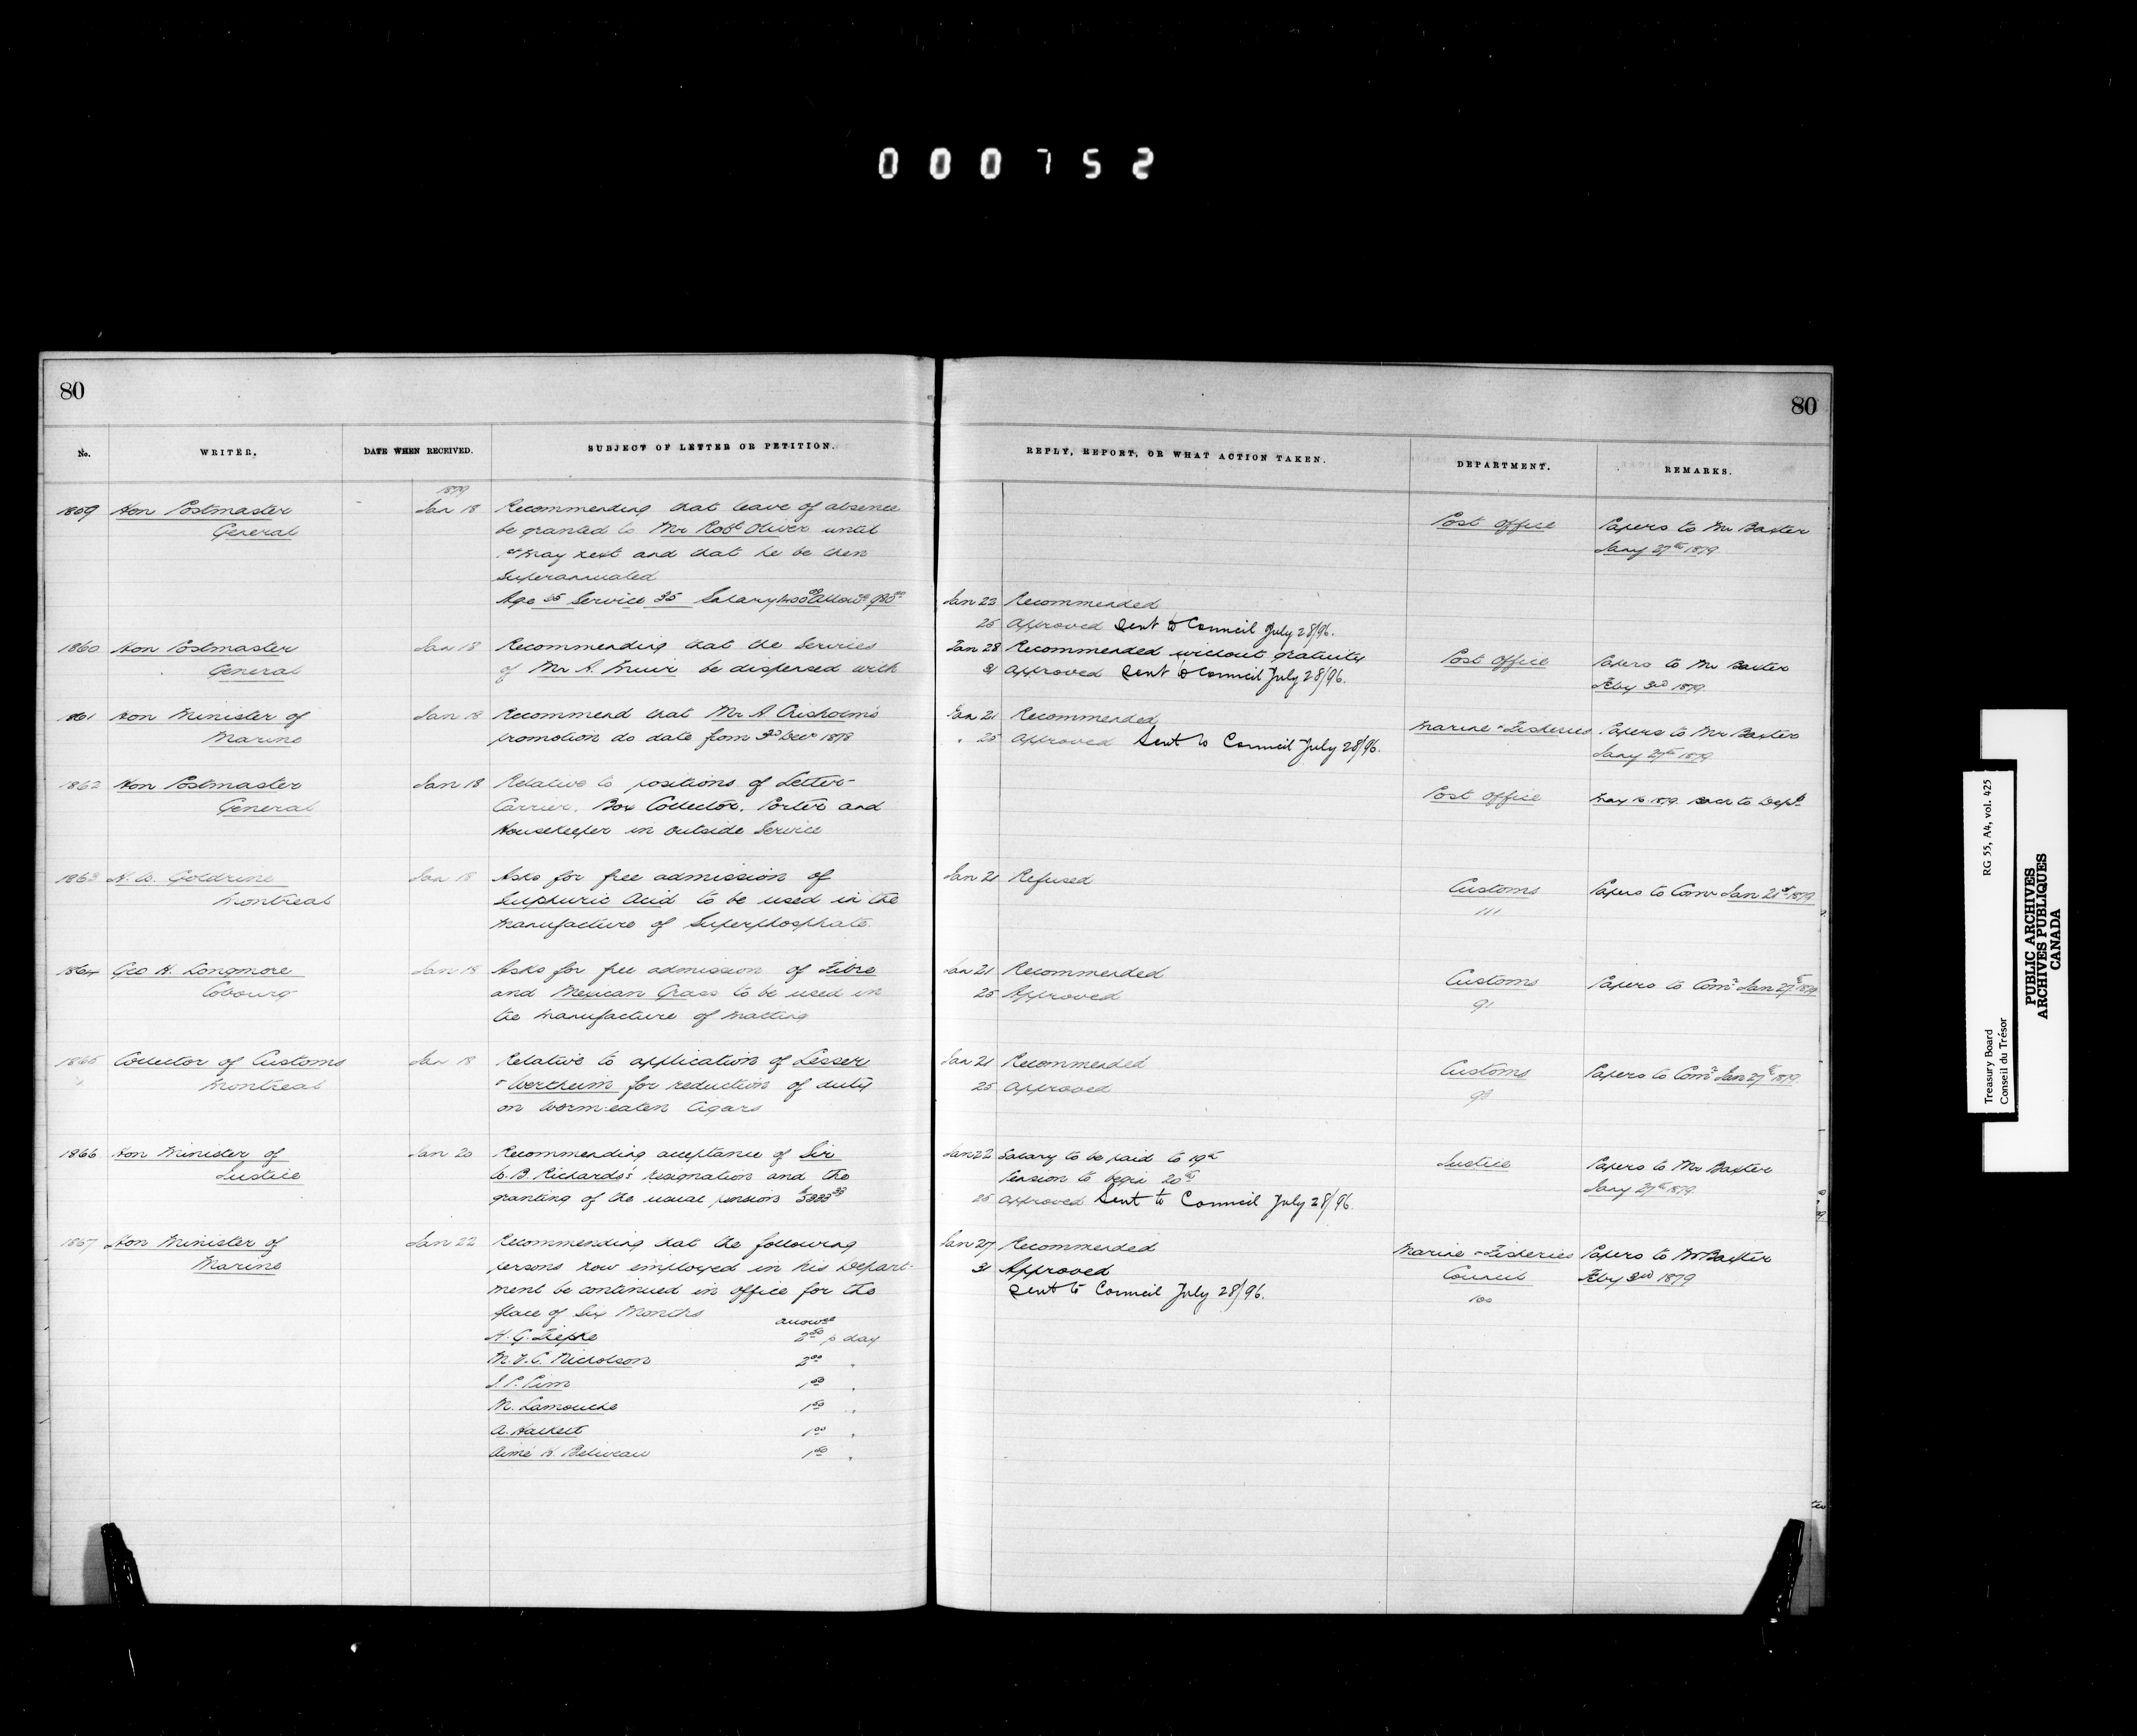 000752
80
No.
WRITER.
DATE WHEN RECEIVED.
SUBJECT OF LETTER OR PETITION.
1879
1859 Hon Postmaster Jan 18 Recommending that leave of absence
General be granted to Mr Robt Oliver until
1st May next and that he be then
Superannuated
Age Service 35 Salary
1860 Hon Postmaster Jan 18 Recommending that the Services
General of Mr A. Muir be dispensed with
1861 Hon Minister of Jan 18 Recommend that Mr A Chisholm's
Marine promotion do date from Decr 1878
1862 Hon Postmaster Jan 18 Relative to positions of Letter-
General Carrier, Box Collector, Porter and
Housekeeper in outside Service
1863 Jan 18 Asks for free admission of
Montreal Sulphuric Acid to be used in the
manufacture of Superphosphate.
1864 Geo H. Longmore Jan 18 Asks for free admission of Fibre
Cobourg and Mexican Grass to be used in
the manufacture of Matting
1865 Collector of Customs Jan 18 Relative to application of Lesser
Montreal & Wertheim for reduction of duty
on Worm-eaten Cigars
1866 Hon Minister of Jan 20 Recommending acceptance of Sir
Justice W. B. Richards's resignation and the
granting of the usual pension
1867 Hon Minister of Jan 22 Recommending that the following
Marine persons now employed in his Depart-
ment be continued in office for the
space of Six Months
allowce
2.50 p day
Nicholson 2.00 "
J. P. Pim "
M. Lamouche 1.50 "
A. "
Aimé H. Beliveau "
80
REPLY, REPORT, OR WHAT ACTION TAKEN.
DEPARTMENT.
REMARKS.
Post Office Papers to Mr Baxter
Jany 27th 1879
Jan 22 Recommended
25 Approved Sent to Council July 28/96.
Jan 28 Recommended without gratuity
Post Office Papers to Mr Baxter
31 Approved Sent to Council July 28/96.
Feby 3rd 1879
Jan 21 Recommended
Marine & Fisheries Papers to Mr Baxter
" 25 Approved Sent to Council July 28/96.
Jany 27th 1879
Post Office May 16 1879 back to Dept
Jan 21 Refused
Customs Papers to Comr Jan 21st 1879
111
Jan 21 Recommended
Customs Papers to Comr Jan 27th 1879
25 Approved
91
Jan 21 Recommended
Customs Papers to Comr Jan 27th 1879
25 Approved
98
Jan 22 Salary to be paid to 19th
Justice Papers to Mr Baxter
Pension to begin 20th
Jany 27th 1879
25 Approved Sent to Council July 28/96.
Jan 27 Recommended
Marine & Fisheries Papers to Mr Baxter
31 Approved
Council Feby 3rd 1879
Sent to Council July 28/96.
100
Treasury Board RG 55, A4, vol. 425
Conseil du Trésor
PUBLIC ARCHIVES
ARCHIVES PUBLIQUES
CANADA